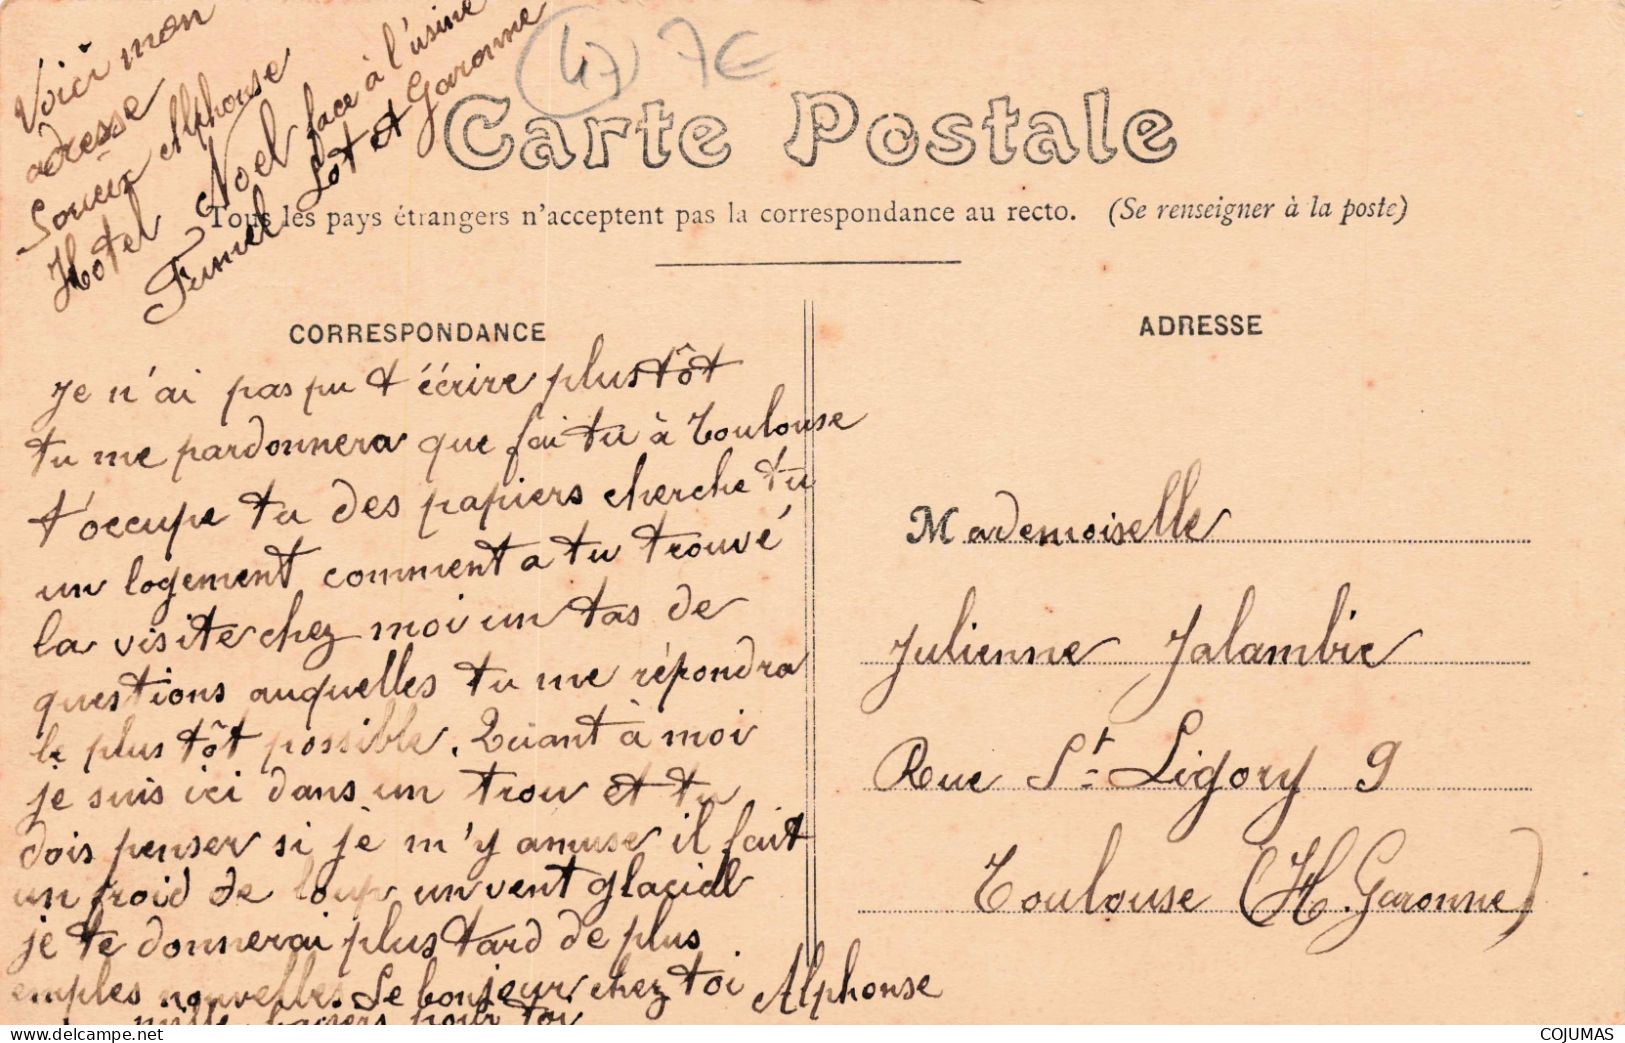 Voici mon
adresse
Soueix Alphonse
Hotel Noel face à l'usine
Fumel Lot et Garonne
47 7€
Carte Postale
Tous les pays étrangers n'acceptent pas la correspondance au recto. (Se renseigner à la poste)
CORRESPONDANCE
Je n'ai pas pu t'écrire plustôt
tu me pardonnera que fai tu à Toulouse
t'occupe tu des papiers cherche tu
un logement comment a tu trouvé
la visite chez moi un tas de
questions auquelles tu me répondra
le plus tôt possible. Quant à moi
je suis ici dans un trou et tu
dois penser si je m'y amuse il fait
un froid de loup un vent glacial
je te donnerai plus tard de plus
emples nouvelles Le bonjour chez toi Alphonse
mille baisers pour toi
ADRESSE
Mademoiselle
Julienne Jalambic
Rue St Ligory 9
Toulouse (H. Garonne)
COJUMAS